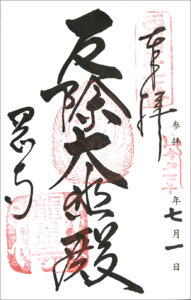 奉拝
参拝
年七月一日
厄除大悲殿
岡寺